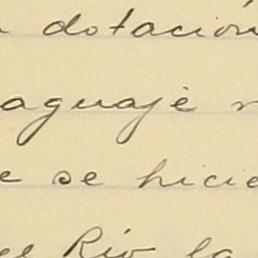 dotación
aguaje
e se hicie
el Río la